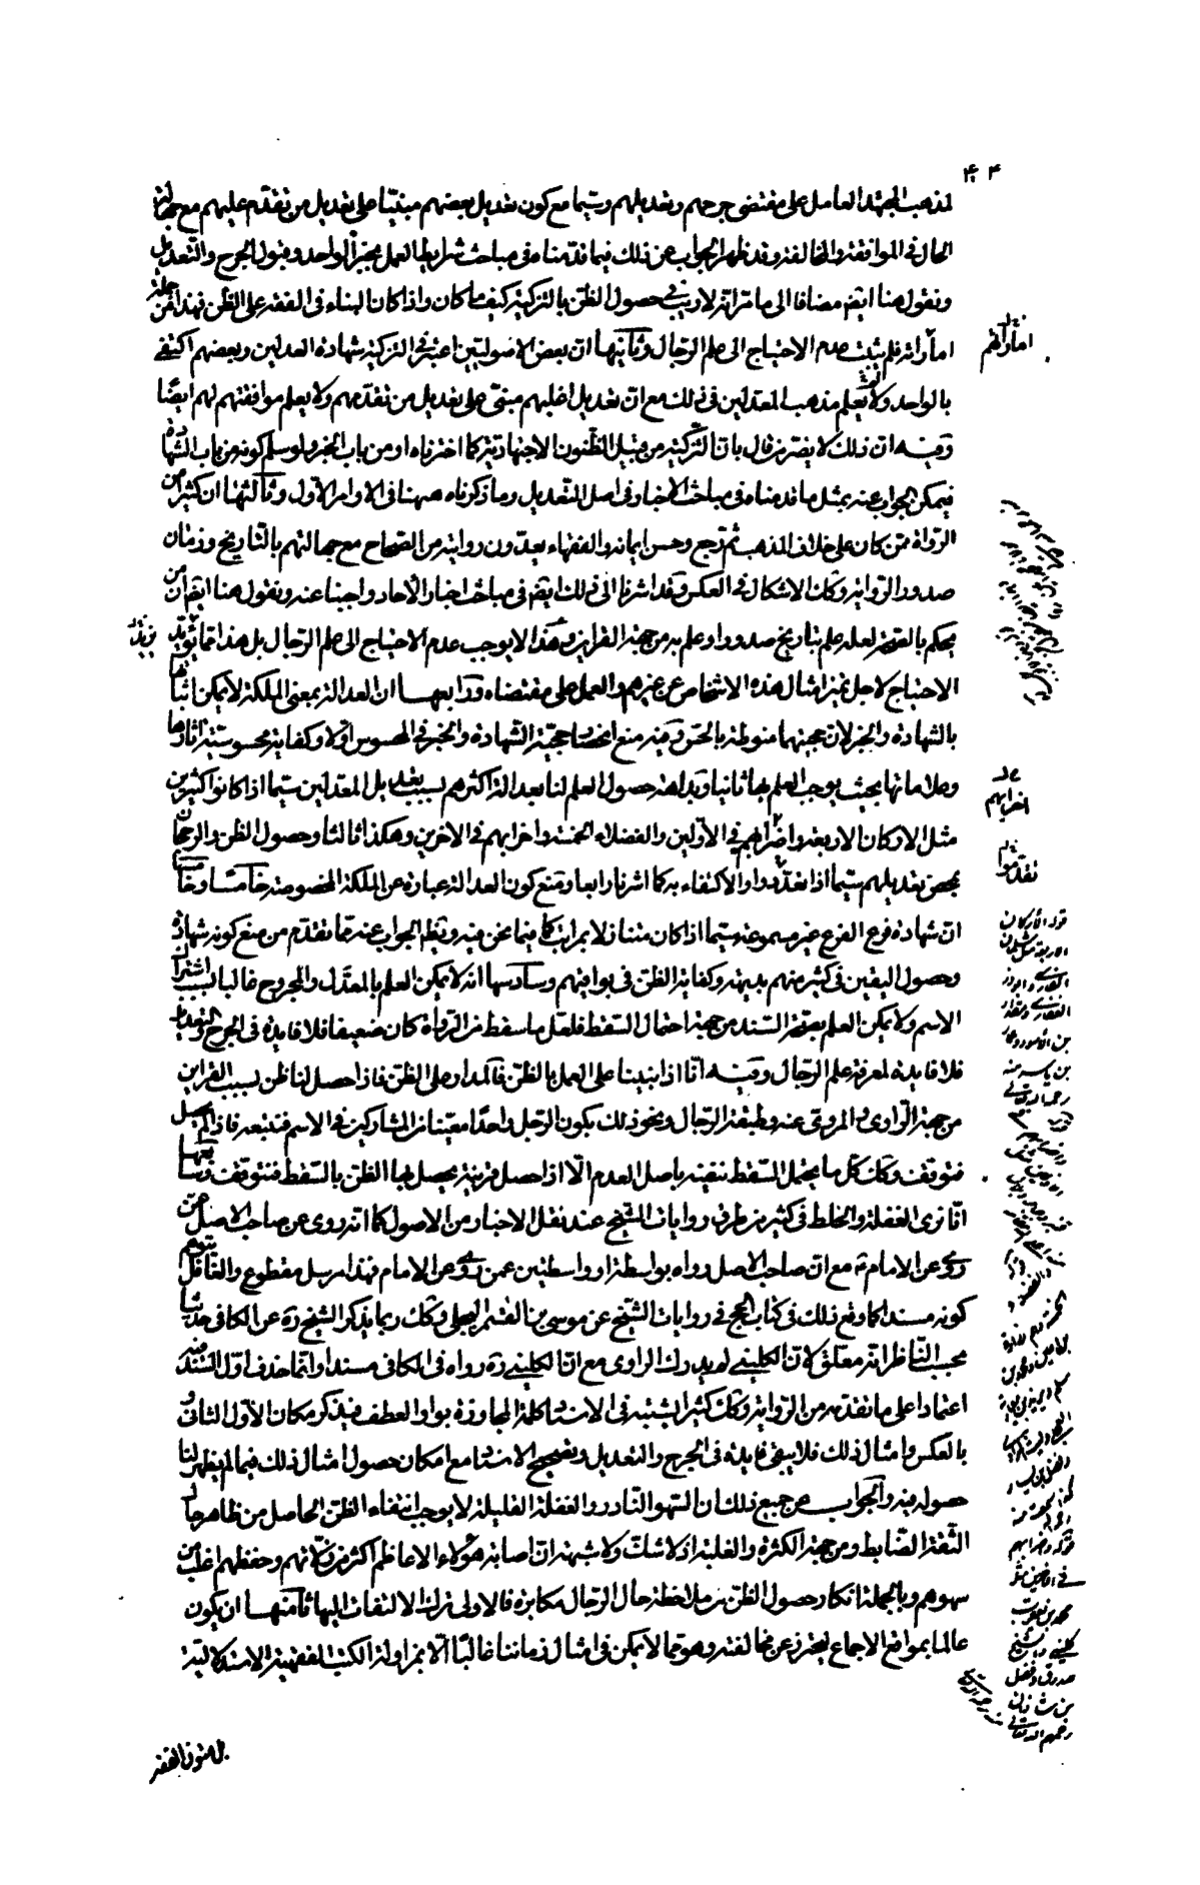 لمذهب المجتهد العامل على مقتضى جرحهم وتعديلهم وسيّما مع كون تعديل بعضهم مبنيّا على تعديل من تقدّم عليهم مع جهالة
الحال في الموافقة والمخالفة وقد ظهر الجواب عن ذلك فيما قدّمناه في مباحث شرايط العمل بخبر الواحد وقبول الجرح والتعديل
ونقول هنا ايضم مضافا الى ما مرّ انّه لا ريب في حصول الظن بالتزكية كيف ما كان واذا كان البناء في الفقه على الظن فهذا من جملة
اماراته فلم يثبت عدم الاحتياج الى علم الرّجال وثانيها انّ بعض الاصوليّين اعتبر في التزكية شهادة العدلين وبعضهم اكتفى
بالواحد ولا يعلم مذهب المعدلين في ذلك مع انّ تعديل اغلبهم مبتنى على تعديل من تقدّمهم ولا يعلم موافقتهم لهم ايضًا
وفيه ان ذلك لا يضرّ من قال بانّ التزكية من قبيل الظّنون الاجتهاديّة كما اخترناه او من باب الخبر ولو سلم كونه من باب الشهادة
فيمكن الجواب عنه بمثل ما قدمناه في مباحث الاخبار في اصل التعديل وما ذكرناه ههنا في الاوامر الاول وثالثها ان كثيرا من
الرّواة ممّن كان على خلاف المذهب ثم رجع وحسن ايمانه والفقهاء يعدّون روايته من الصّحاح مع جهالتهم بالتّاريخ وزمان
صدور الرّواية وكك الاشكال في العكس وقد اشرنا الى ذلك ايضم في مباحث اخبار الآحاد واجبنا عنه ونقول هنا ايضم ان من
يحكم بالصحّة لعله علم بتاريخ صدورها وعلم به من جهة القراين وهذا لا يوجب عدم الاحتياج الى علم الرّجال بل هذا ممّا يؤيّد
الاحتياج لاجل تميز امثال هذه الاشخاص عن غيرهم والعمل على مقتضاه ورابعها ان العدالة بمعنى الملكة لا يمكن اثباتها
بالشهادة والخبر لان حجيتهما منوطة بالحسّ وفيه منع انحصار حجيّة الشهادة والخبر في المحسوس اوّلا وكفاية محسوسيّة آثارها
وعلاماتها بحيث يوجب العلم بها ثانيا وبداهة حصول العلم لنا بعدالة اكثرهم بسبب تعديل المعدلين سيّما اذا كانوا كثيرين
مثل الاركان الاربعة واضرابهم في الاوّلين والفضلاء الخمسة واحزابهم في الآخرين وهكذا ثالثا وحصول الظن والرجحان
بمحض تعديلهم سيّما اذا تعدّدوا والاكتفاء به كما اشرنا رابعا ومنع كون العدالة عبارة عن الملكة المخصوصة خامسا وخامسها
ان شهادة فرع الفرع غير مسموعة سيّما اذا كان متنازلا بمراتب كما فيما نحن فيه ويظهر الجواب عنه ممّا تقدّم من منع كونه شهادة
وحصول اليقين في كثير منهم بديهة وكفاية الظنّ في بواقيهم وسادسها انه لا يمكن العلم بالمعدّل والمجروح غالبا بسبب اشتراك
الاسم ولا يمكن العلم بصحّة السّند من جهة احتمال السّقط فلعلّ ما سقط من الرّواة كان ضعيفا فلا فايدة في الجرح والتعديل
فلا فايدة لمعرفة علم الرّجال وفيه انّا اذا بنينا على العمل بالظنّ فالمدار على الظنّ فاذا حصل لنا ظن بسبب القراين
من جهة الرّاوي والمروى عنه وطبقة الرّجال ونحو ذلك بكون الرّجل واحدًا معيّنا من المشاركين في الاسم فنتبعه فاذا لم يحصل
فنتوقف وكك كلّ ما يحتمل السّقط ننفيه باصل العدم الّا اذا حصل قرينة يحصل لها الظن بالسّقط فنتوقف وسابعها
انّا نرى الغفلة والخلط في كثير من طرق روايات الشّيخ عند نقل الاخبار من الاصول كما انّه روى عن صاحب الاصل عمن
روى عن الامام ع مع انّ صاحب الاصل رواه بواسطة او واسطتين عمن روى عن الامام فهذا مرسل مقطوع والغافل يتوهم
كونه مسندا كما وقع ذلك في كتاب الحج في روايات الشّيخ عن موسى بن القسم البجلى وكك ربما يذكر الشّيخ ره عن الكافي حديثا
يحسب النّاظر انّه معلّق لانّ الكلينى لم يدرك الراوى مع انّ الكلينى ره رواه في الكافي مسندا وانّما حذف اوّل السّند منه
اعتمادا على ما تقدّمه من الرّواية وكك كثيرا يشتبه في الاسناد كلمة المجاوزة بواو العطف فيذكر مكان الاوّل الثاني و
بالعكس وامثال ذلك فلا يبقى فايدة في الجرح والتعديل وتصحيح الاسناد مع امكان حصول امثال ذلك فيما لم يظهر لنا
حصوله فيه والجواب عن جميع ذلك ان السّهو النّادر والغفلة القليلة لا يوجب انتفاء الظنّ الحاصل من ظاهر حال
الثّقة الضّابط ومن جهة الكثرة والغلبة اذ لا شك ولا شبهة ان اصابة هؤلاء الاعاظم اكثر من زلّاتهم وحفظهم اغلب من
سهوهم وبالجملة انكار حصول الظنّ من ملاحظة حال الرّجال مكابرة فالاولى ترك الالتفات اليها ثامنها ان يكون
عالما بمواقع الاجماع ليحترز عن مخالفته وهو ممّا لا يمكن في امثال زماننا غالبًا الّا بمزاولة الكتب الفقهيّة الاستدلاليّة
اماراتهم
احزابهم
تقدّموا
قوله الاركان
الاربعة سلمان
الفارسى وابوذر
الغفارى ومقداد
بن الاسود وعمار
بن ياسر
محمد بن يعقوب
كلينى وشيخ
صدوق وفضل
بن شاذان
رحمهم الله تعالى
بل متون الفقه